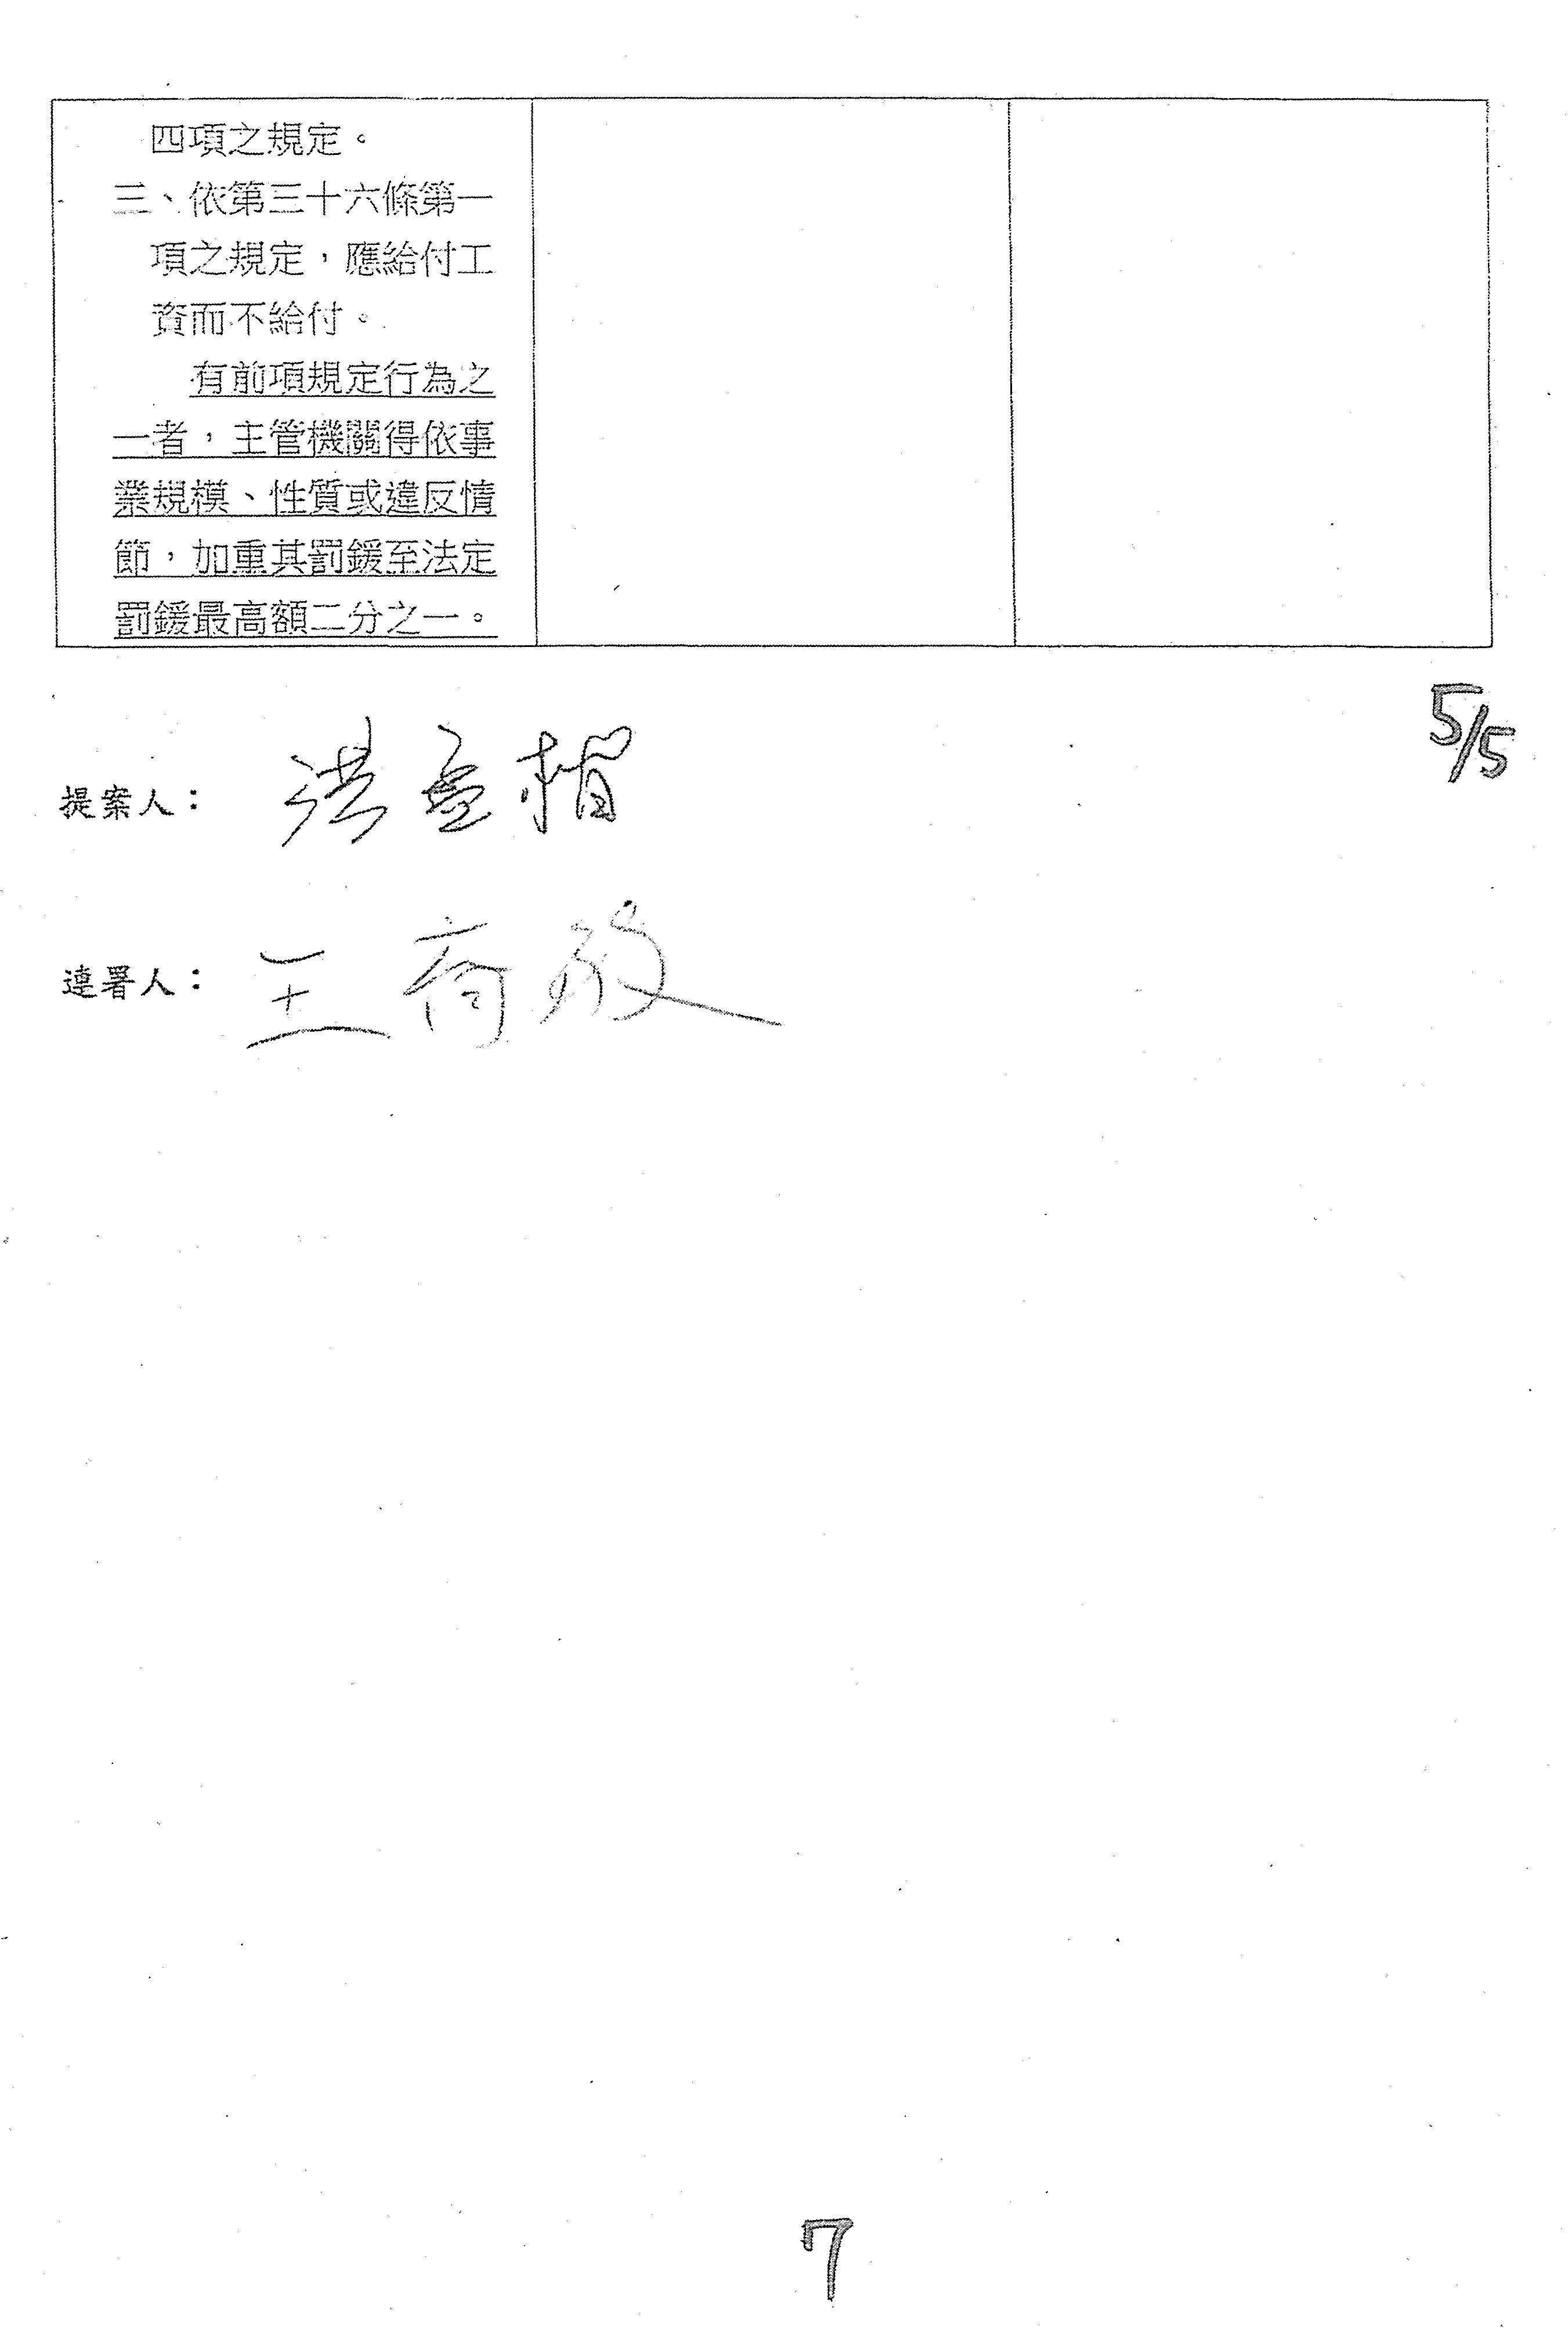 四項之規定。
三、依第三十六條第一
項之規定，應給付工
資而不給付。
有前項規定行為之
一者，主管機關得依事
業規模、性質或違反情
節，加重其罰鍰至法定
罰鍰最高額二分之一。
5/5
提案人：洪孟楷
連署人：王育敏
7